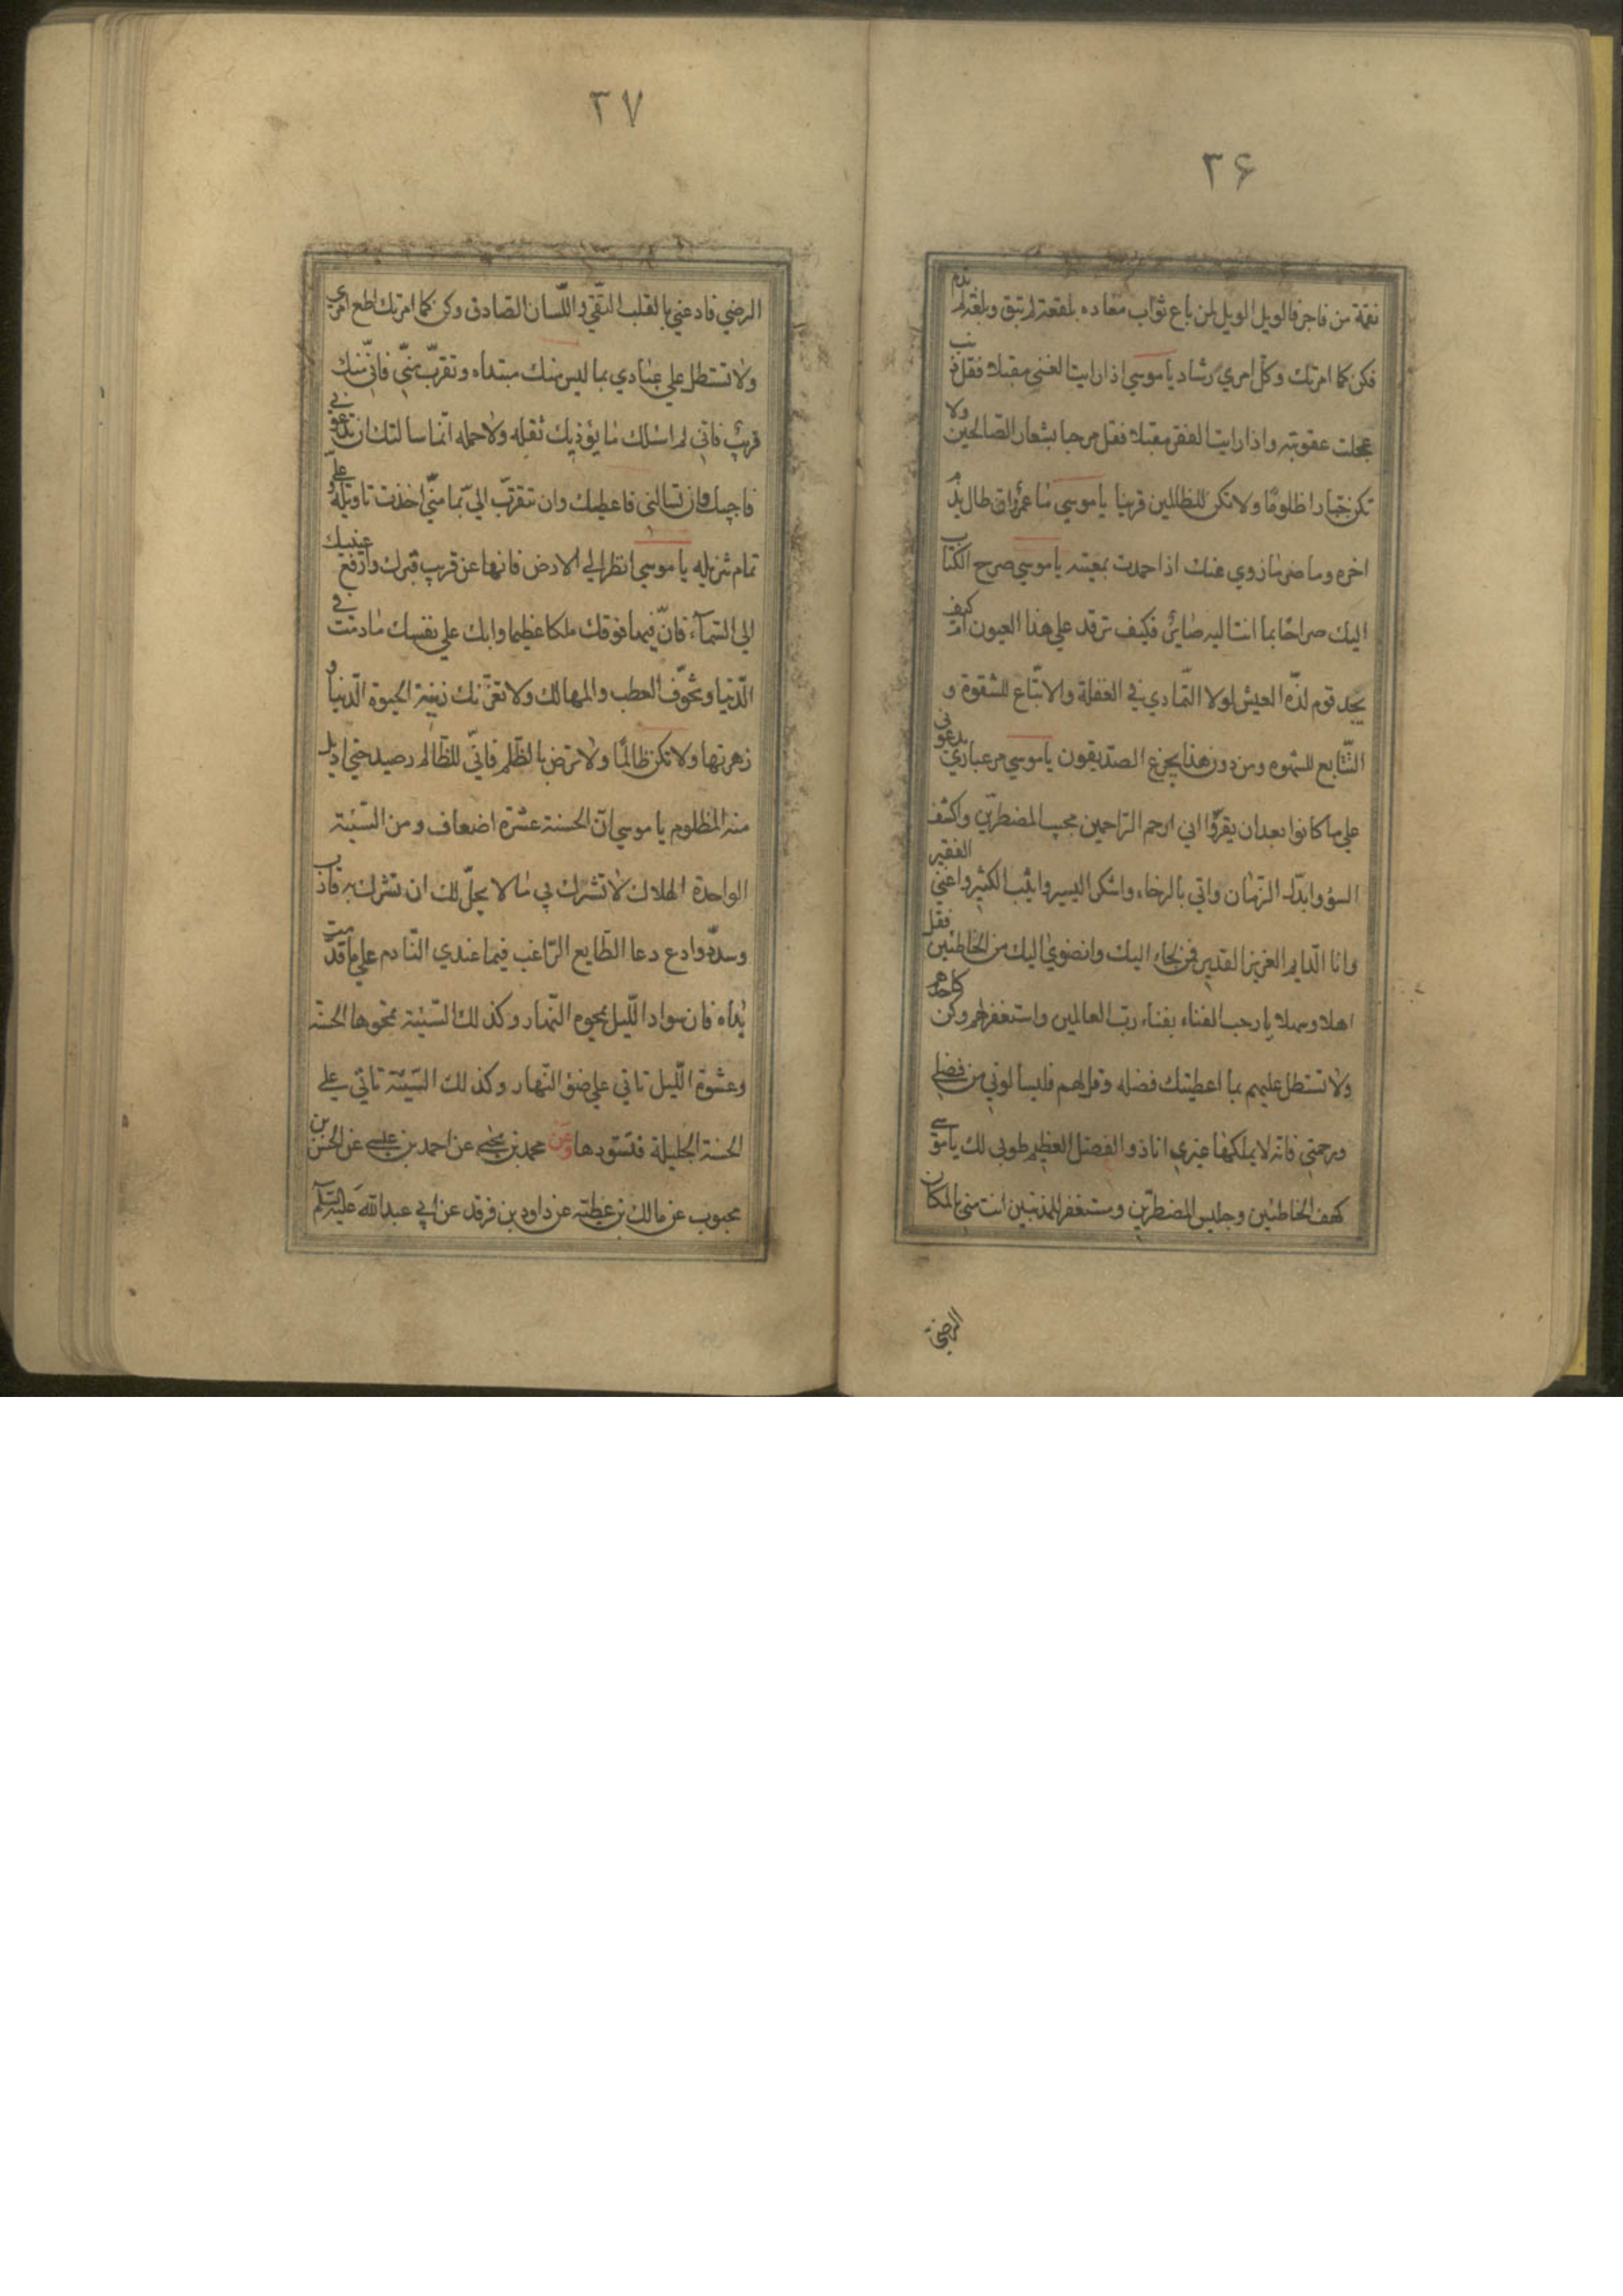 ۳۶
نقمة من فاجر فالويل الويل لمن باع ثواب معاده بلعقة لم تبق وبلعة لم تدم
فكن كما امرتك وكل امري رشاد يا موسي اذا رايت الغني مقبلا فقل ذنب
عجلت عقوبته واذا رايت الفقر مقبلا فقل مرحبا بشعار الصالحين ولا
تكن جبارا ظلوما ولا تكن للظالمين قرينا يا موسي ما عمر وان طال يذم
اخره وما ضرما زوي عنك اذا حمدت بمغبته يا موسي صرح الكتاب
اليك صراحا بما انت اليه صاير فكيف ترقد علي هذا العيون ام كيف
يجد قوم لذة العيش لولا التمادي في الغفلة والاتباع للشقوة و
التتابع للشهوه ومن دون هذا يجزع الصديقون يا موسي مر عبادي يدعوني
علي ما كانوا بعد ان يقروا اني ارحم الراحمين مجيب المضطرين واكشف
السوء وابدل الزمان واتي بالرخاء واشكر اليسير واثيب الكثير واغني الفقير
وانا الدايم العزيز القدير فمن لجاء اليك وانضوي اليك من الخاطئين فقل
اهلا وسهلا يا رحب الفناء بفناء رب العالمين واستغفر لهم وكن كاحدهم
ولا تستطل عليهم بما اعطيتك فضله وقل لهم فليسالوني من فضلي
ورحمتي فانه لا يملكها غيري انا ذو الفضل العظيم طوبي لك يا موسي
كهف الخاطئين وجليس المضطرين ومستغفر للمذنبين انت مني بالمكان
الرضي
۳۷
الرضي فادعني بالقلب النقي واللسان الصادق وكن كما امرتك اطع امري
ولا تستطل علي عبادي بما ليس منك مبتداه وتقرب مني فاني منك
قريب فاني لم اسئلك ما يؤذيك ثقله ولا حمله انما سالتك ان تدعوني
فاجيبك وان تسالني فاعطيك وان تتقرب الي بما مني اخذت تاويله وعلي
تمام تنزيله يا موسي انظر الي الارض فانها عن قريب قبرك وارفع عينيك
الي السماء فان فيها فوقك ملكا عظيما وابك علي نفسك ما دمت في
الدنيا وتخوف العطب والمهالك ولا تغرنك زينة الحيوة الدنيا و
زهرتها ولا تكن ظالما ولا ترض بالظلم فاني للظالم رصيد حتي اديل
منه المظلوم يا موسي ان الحسنة عشرة اضعاف ومن السيئة
الواحدة الهلاك لا تشرك بي ما لا يحل لك ان تشرك به قارب
وسدد وادع دعا الطايع الراغب فيما عندي النادم علي ما قدمت
يداه فان سواد الليل يمحوه النهار وكذلك السيئة تمحوها الحسنة
وعشوة الليل تاتي علي ضوء النهار وكذلك السيئة تاتي علي
الحسنة الجليلة فتسودها وعن محمد بن يحيي عن احمد بن عيسي عن الحسن بن
محبوب عن مالك بن عطيه عن داود بن فرقد عن ابي عبدالله عليه السلم